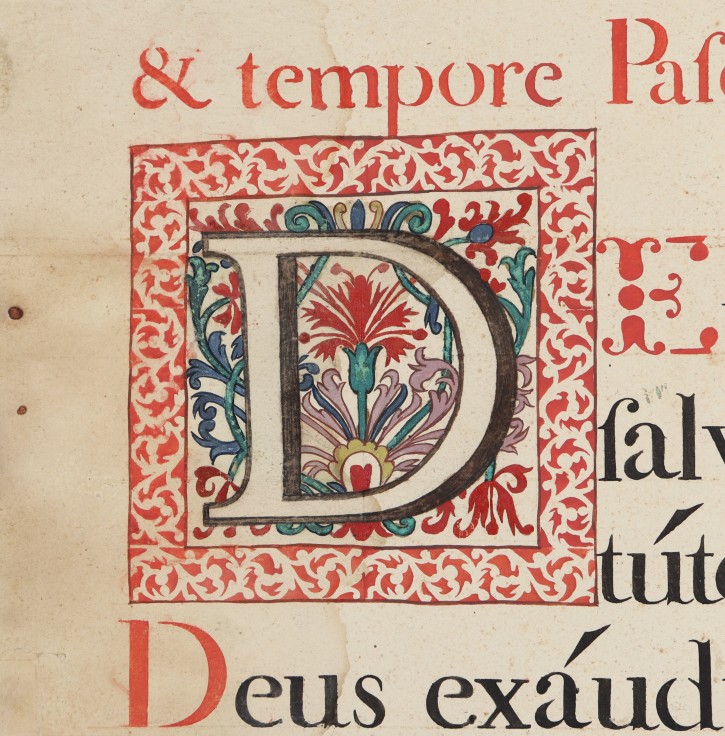 & tempore Paſc
DE
ſalv
túte
Deus exáudi